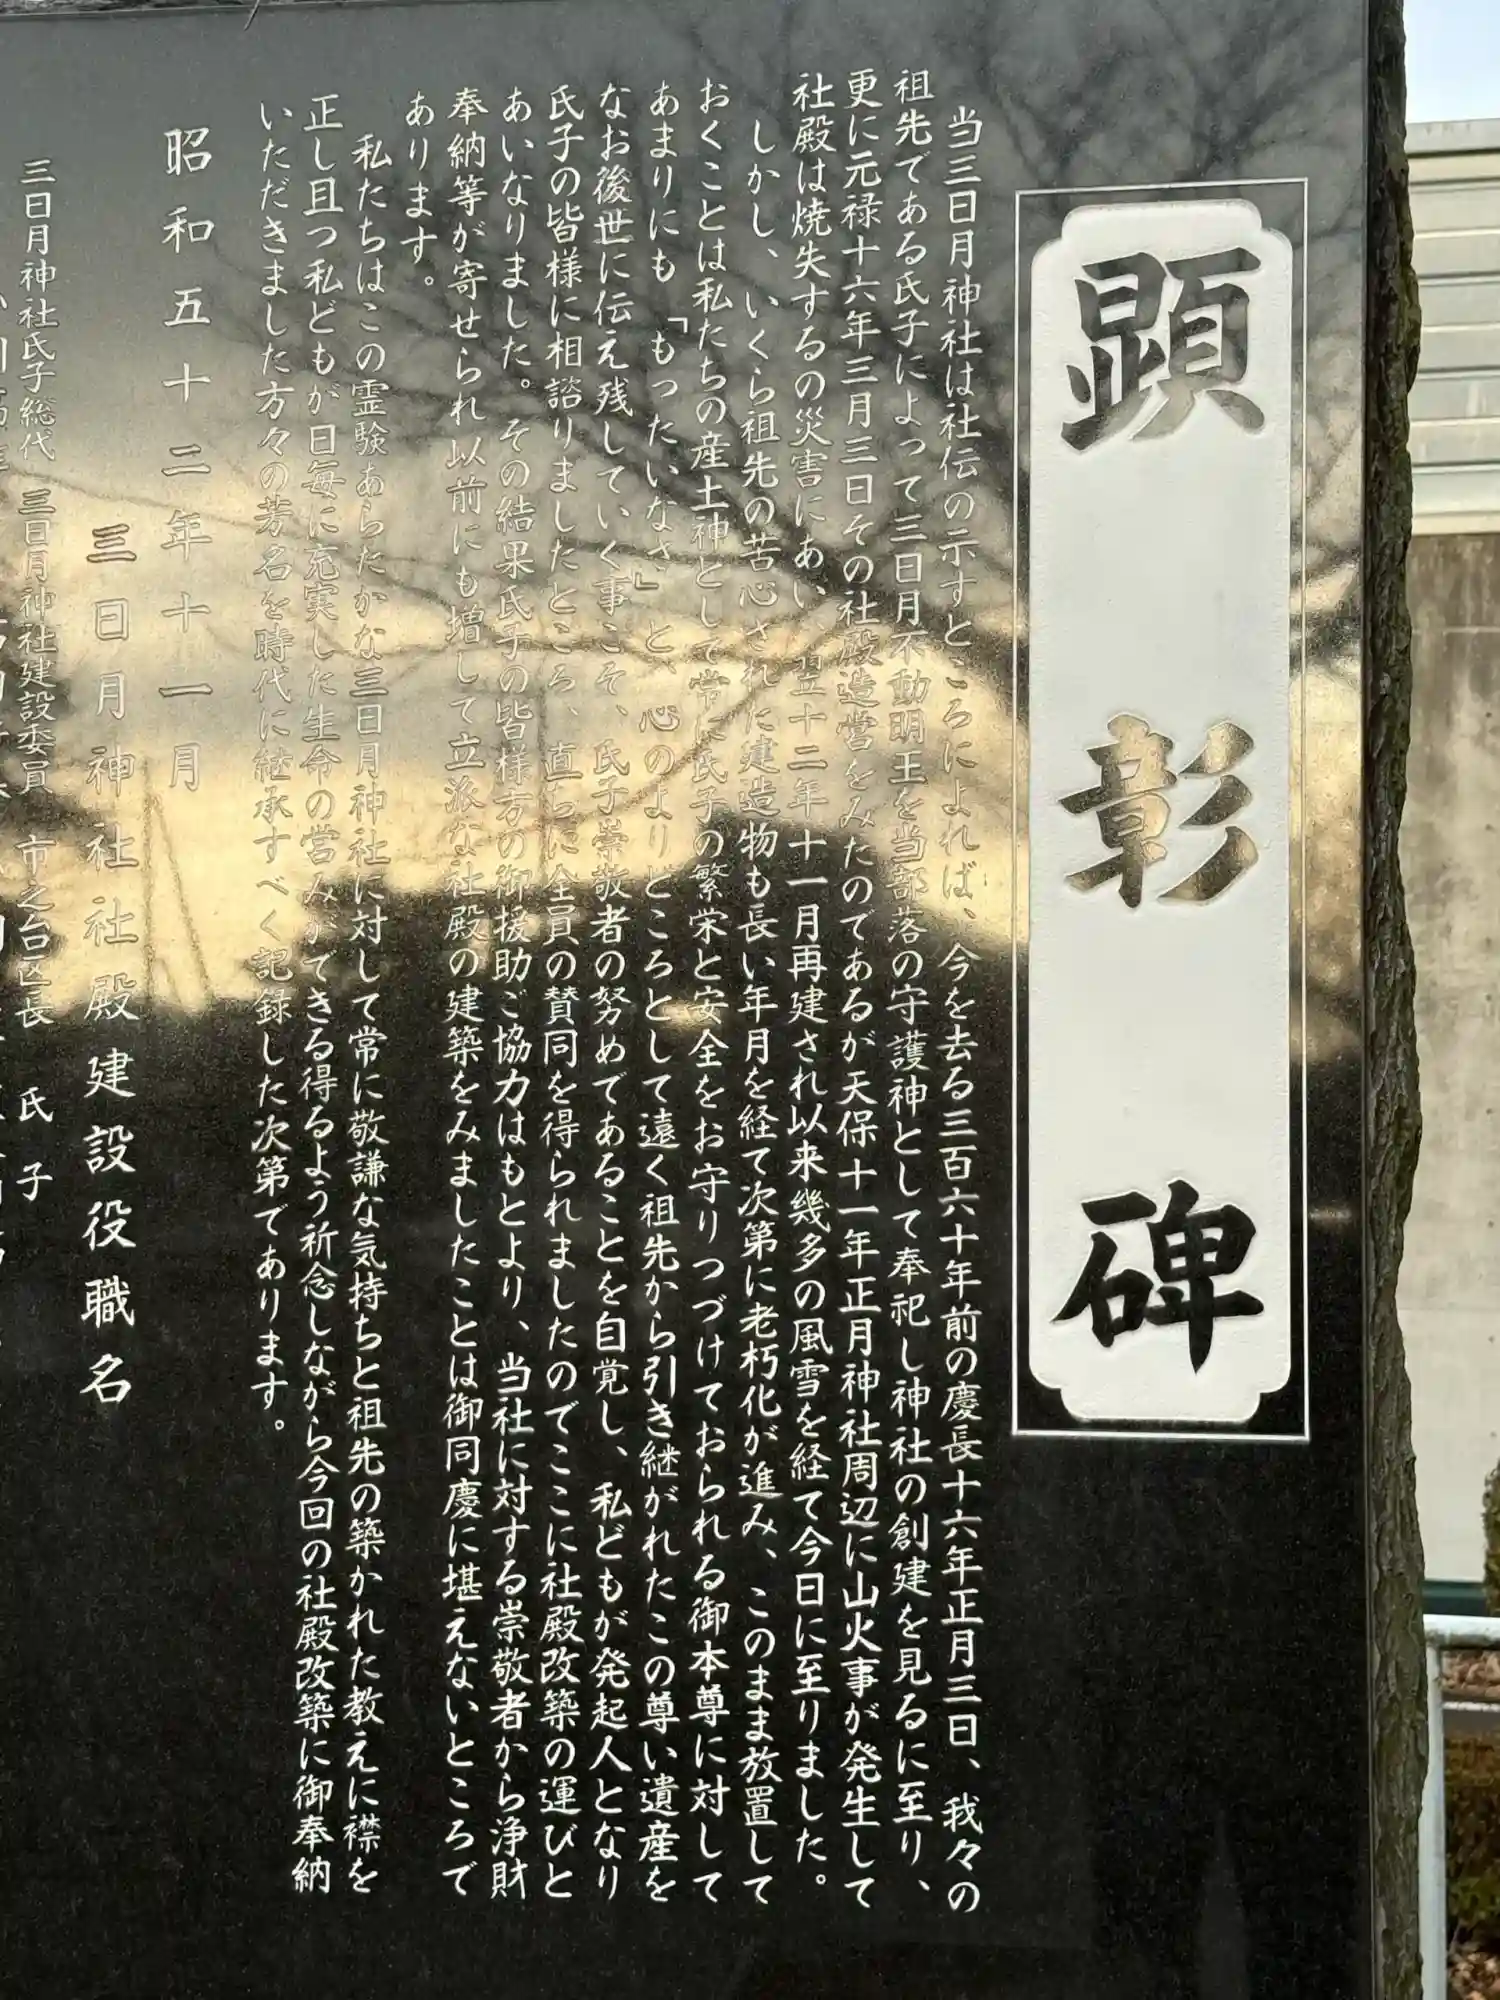 顕彰碑
当三日月神社は社伝の示すところによれば、今を去る三百六十年前の慶長十六年正月三日、我々の
祖先である氏子によって三日月不動明王を当部落の守護神として奉祀し神社の創建を見るに至り、
更に元禄十六年三月三日その社殿造営をみたのであるが天保十一年正月神社周辺に山火事が発生して
社殿は焼失するの災害にあい、翌十二年十一月再建され以来幾多の風雪を経て今日に至りました。
しかし、いくら祖先の苦心された建造物も長い年月を経て次第に老朽化が進み、このまま放置して
おくことは私たちの産土神として常に氏子の繁栄と安全をお守りつづけておられる御本尊に対して
あまりにも「もったいなさ」と、心のよりどころとして遠く祖先から引き継がれたこの尊い遺産を
なお後世に伝え残していく事こそ、氏子崇敬者の努めであることを自覚し、私どもが発起人となり
氏子の皆様に相諮りましたところ、直ちに全員の賛同を得られましたのでここに社殿改築の運びと
あいなりました。その結果氏子の皆様方の御援助ご協力はもとより、当社に対する崇敬者から浄財
奉納等が寄せられ以前にも増して立派な社殿の建築をみましたことは御同慶に堪えないところで
あります。
私たちはこの霊験あらたかな三日月神社に対して常に敬謙な気持ちと祖先の築かれた教えに襟を
正し且つ私どもが日毎に充実した生命の営みができる得るよう祈念しながら今回の社殿改築に御奉納
いただきました方々の芳名を時代に継承すべく記録した次第であります。
昭和五十二年十一月
三日月神社社殿建設役職名
三日月神社氏子総代 三日月神社建設委員 市之台区長 氏子